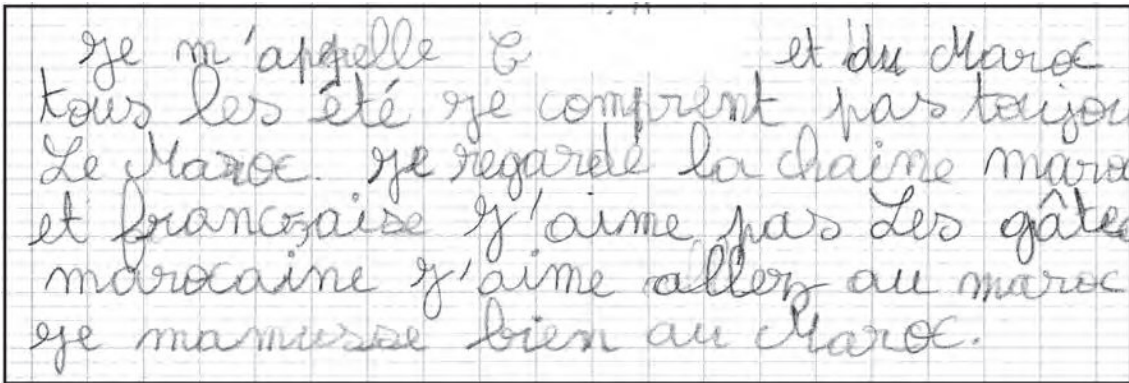 Je m'appelle C et du Maroc
tous les été je comprent pas toujou
Le Maroc. Je regarde la chaine maro
et franczaise J'aime pas Les gâtea
marocaine J'aime allez au maroc
je mamusse bien au Maroc.